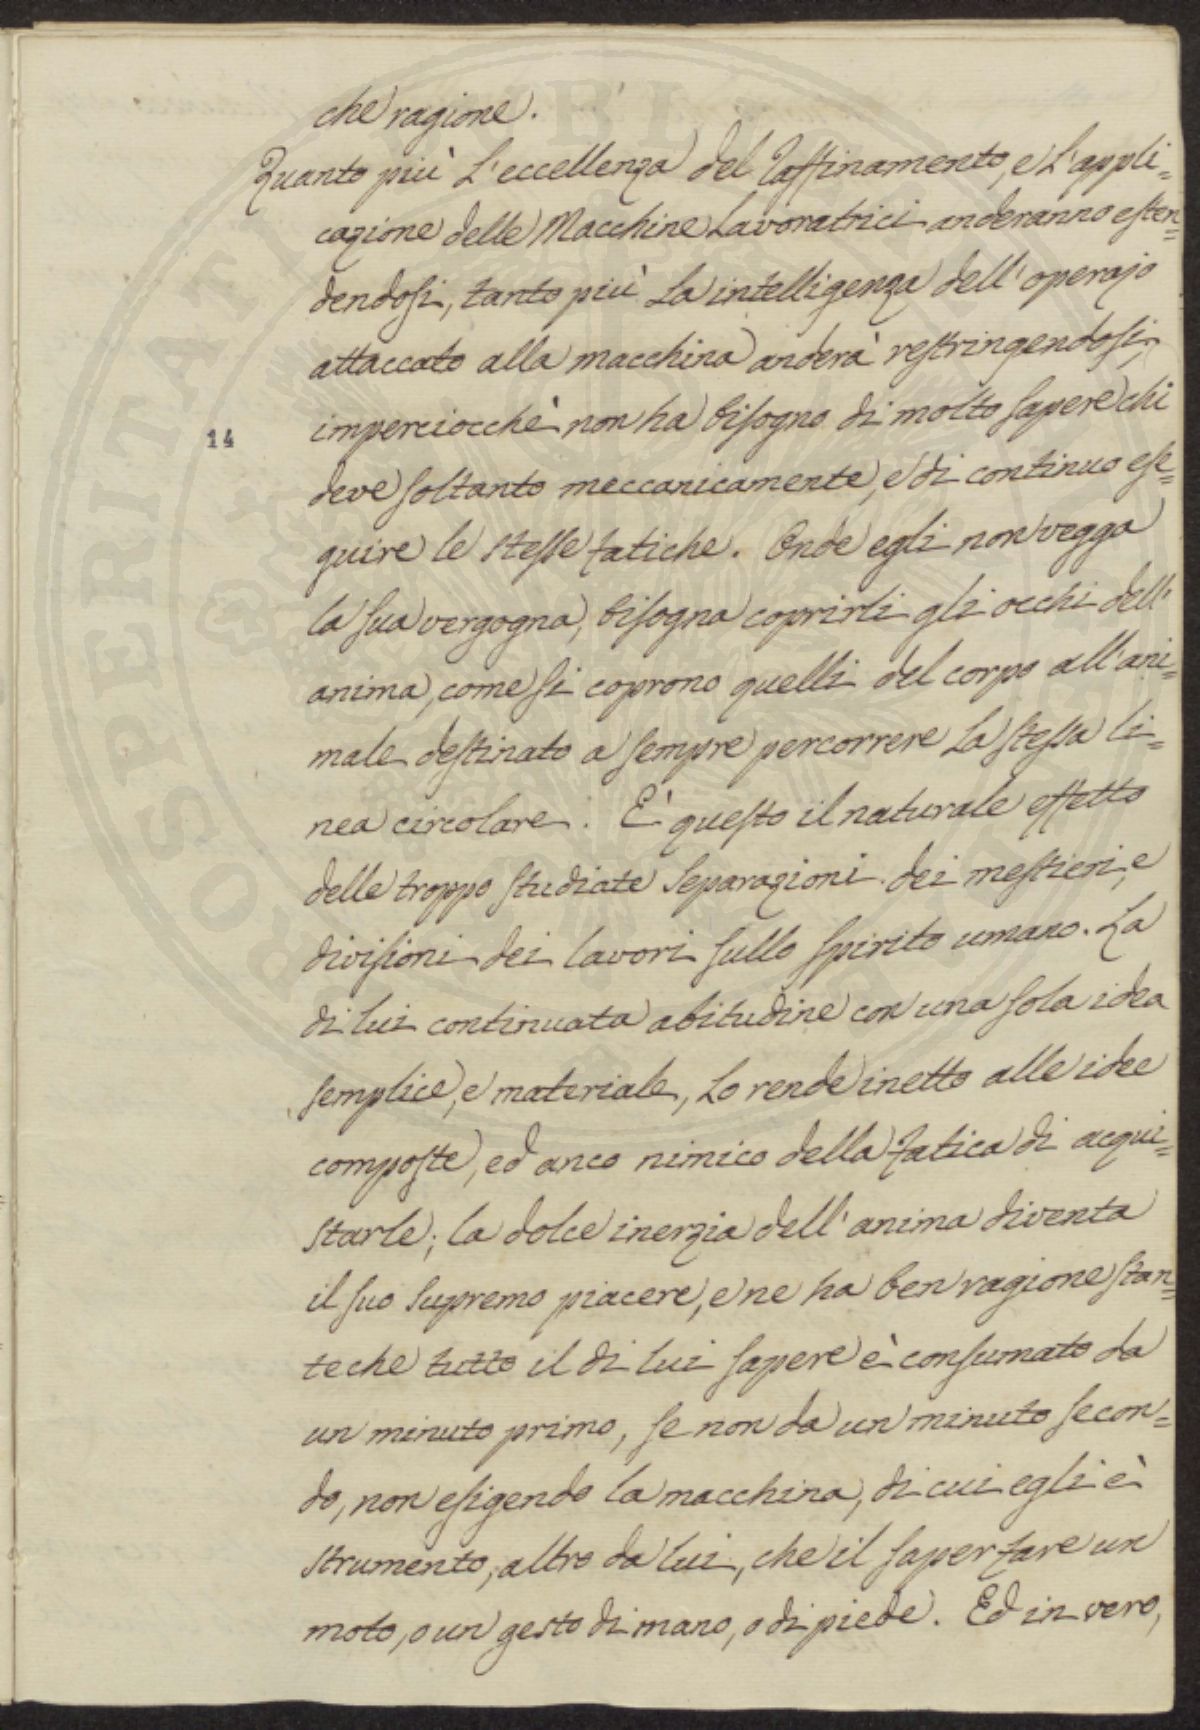 che ragione.
Quanto più l'eccellenza del raffinamento, e l'appli=
cazione delle Macchine lavoratrici anderanno esten=
dendosi, tanto più la intelligenza dell'operajo
attaccato alla macchina anderà restringendosi,
imperciocchè non ha bisogno di molto sapere chi
14
deve soltanto meccanicamente, e di continuo ese=
guire le stesse fatiche. Onde egli non vegga
la sua vergogna, bisogna coprirli gli occhi dell'
anima, come si coprono quelli del corpo all'ani=
male destinato a sempre percorrere la stessa li=
nea circolare. È questo il naturale effetto
delle troppo studiate separazioni dei mestieri, e
divisioni dei lavori sullo spirito umano. La
di lui continuata abitudine con una sola idea
semplice, e materiale, lo rende inetto alle idee
composte, ed anco nimico della fatica di acqui=
starle; la dolce inerzia dell'anima diventa
il suo supremo piacere, e ne ha ben ragione stan=
teche tutto il di lui sapere è consumato da
un minuto primo, se non da un minuto secon=
do, non esigendo la macchina, di cui egli è
strumento, altro da lui, che il saper fare un
moto, o un gesto di mano, o di piede. Ed in vero,
PROSPERITATI PUBLI